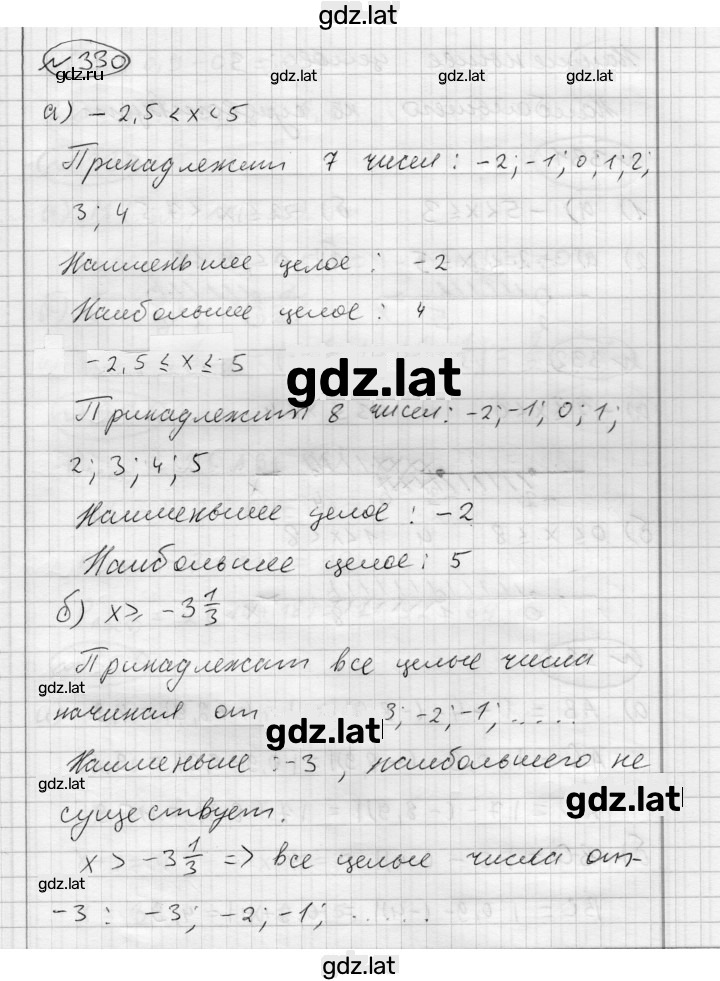 gdz.lat
№330
gdz.ru gdz.lat gdz.lat
а) -2,5 < x < 5
Принадлежит 7 чисел: -2; -1; 0; 1; 2;
3; 4
Наименьшее целое: -2
Наибольшее целое: 4
-2,5 ≤ x ≤ 5
gdz.lat
Принадлежит 8 чисел: -2; -1; 0; 1;
2; 3; 4; 5
Наименьшее целое: -2
Наибольшее целое: 5
б) x ≥ -3 1/3
Принадлежат все целые числа
gdz.lat
начиная от 3; -2; -1; ....
gdz.lat
Наименьше: -3, наибольшего не
gdz.lat
существует.
gdz.lat
x > -3 1/3 => все целые числа от
gdz.lat
-3: -3; -2; -1; ....
gdz.lat